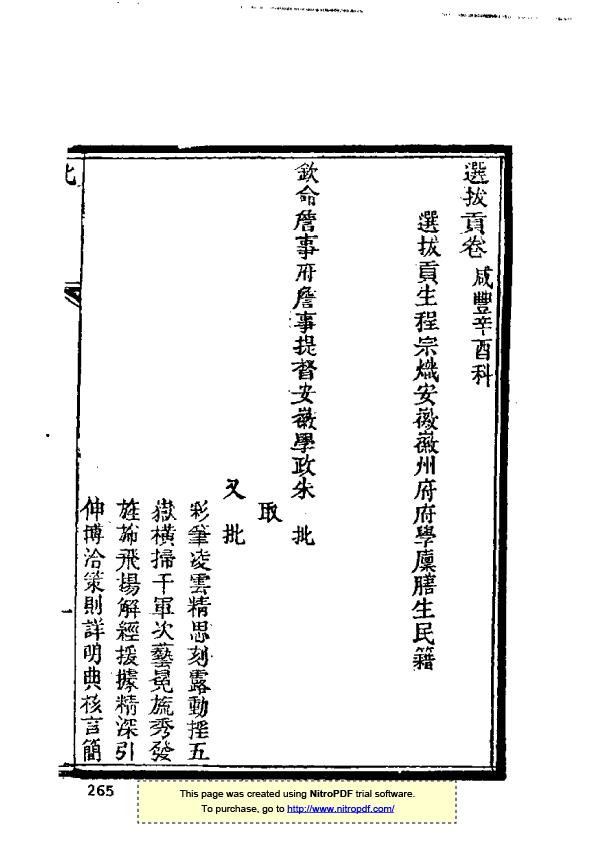 選拔貢卷 咸豐辛酉科
選拔貢生程宗熾安徽徽州府府學廩膳生民籍
欽命詹事府詹事提督安徽學政朱 批
取
又 批
彩筆凌雲精思刻露動搖五
嶽橫掃千軍次藝晃旒秀發
旌旆飛揚解經援據精深引
伸博洽策則詳明典核言簡
265
This page was created using NitroPDF trial software.
To purchase, go to http://www.nitropdf.com/